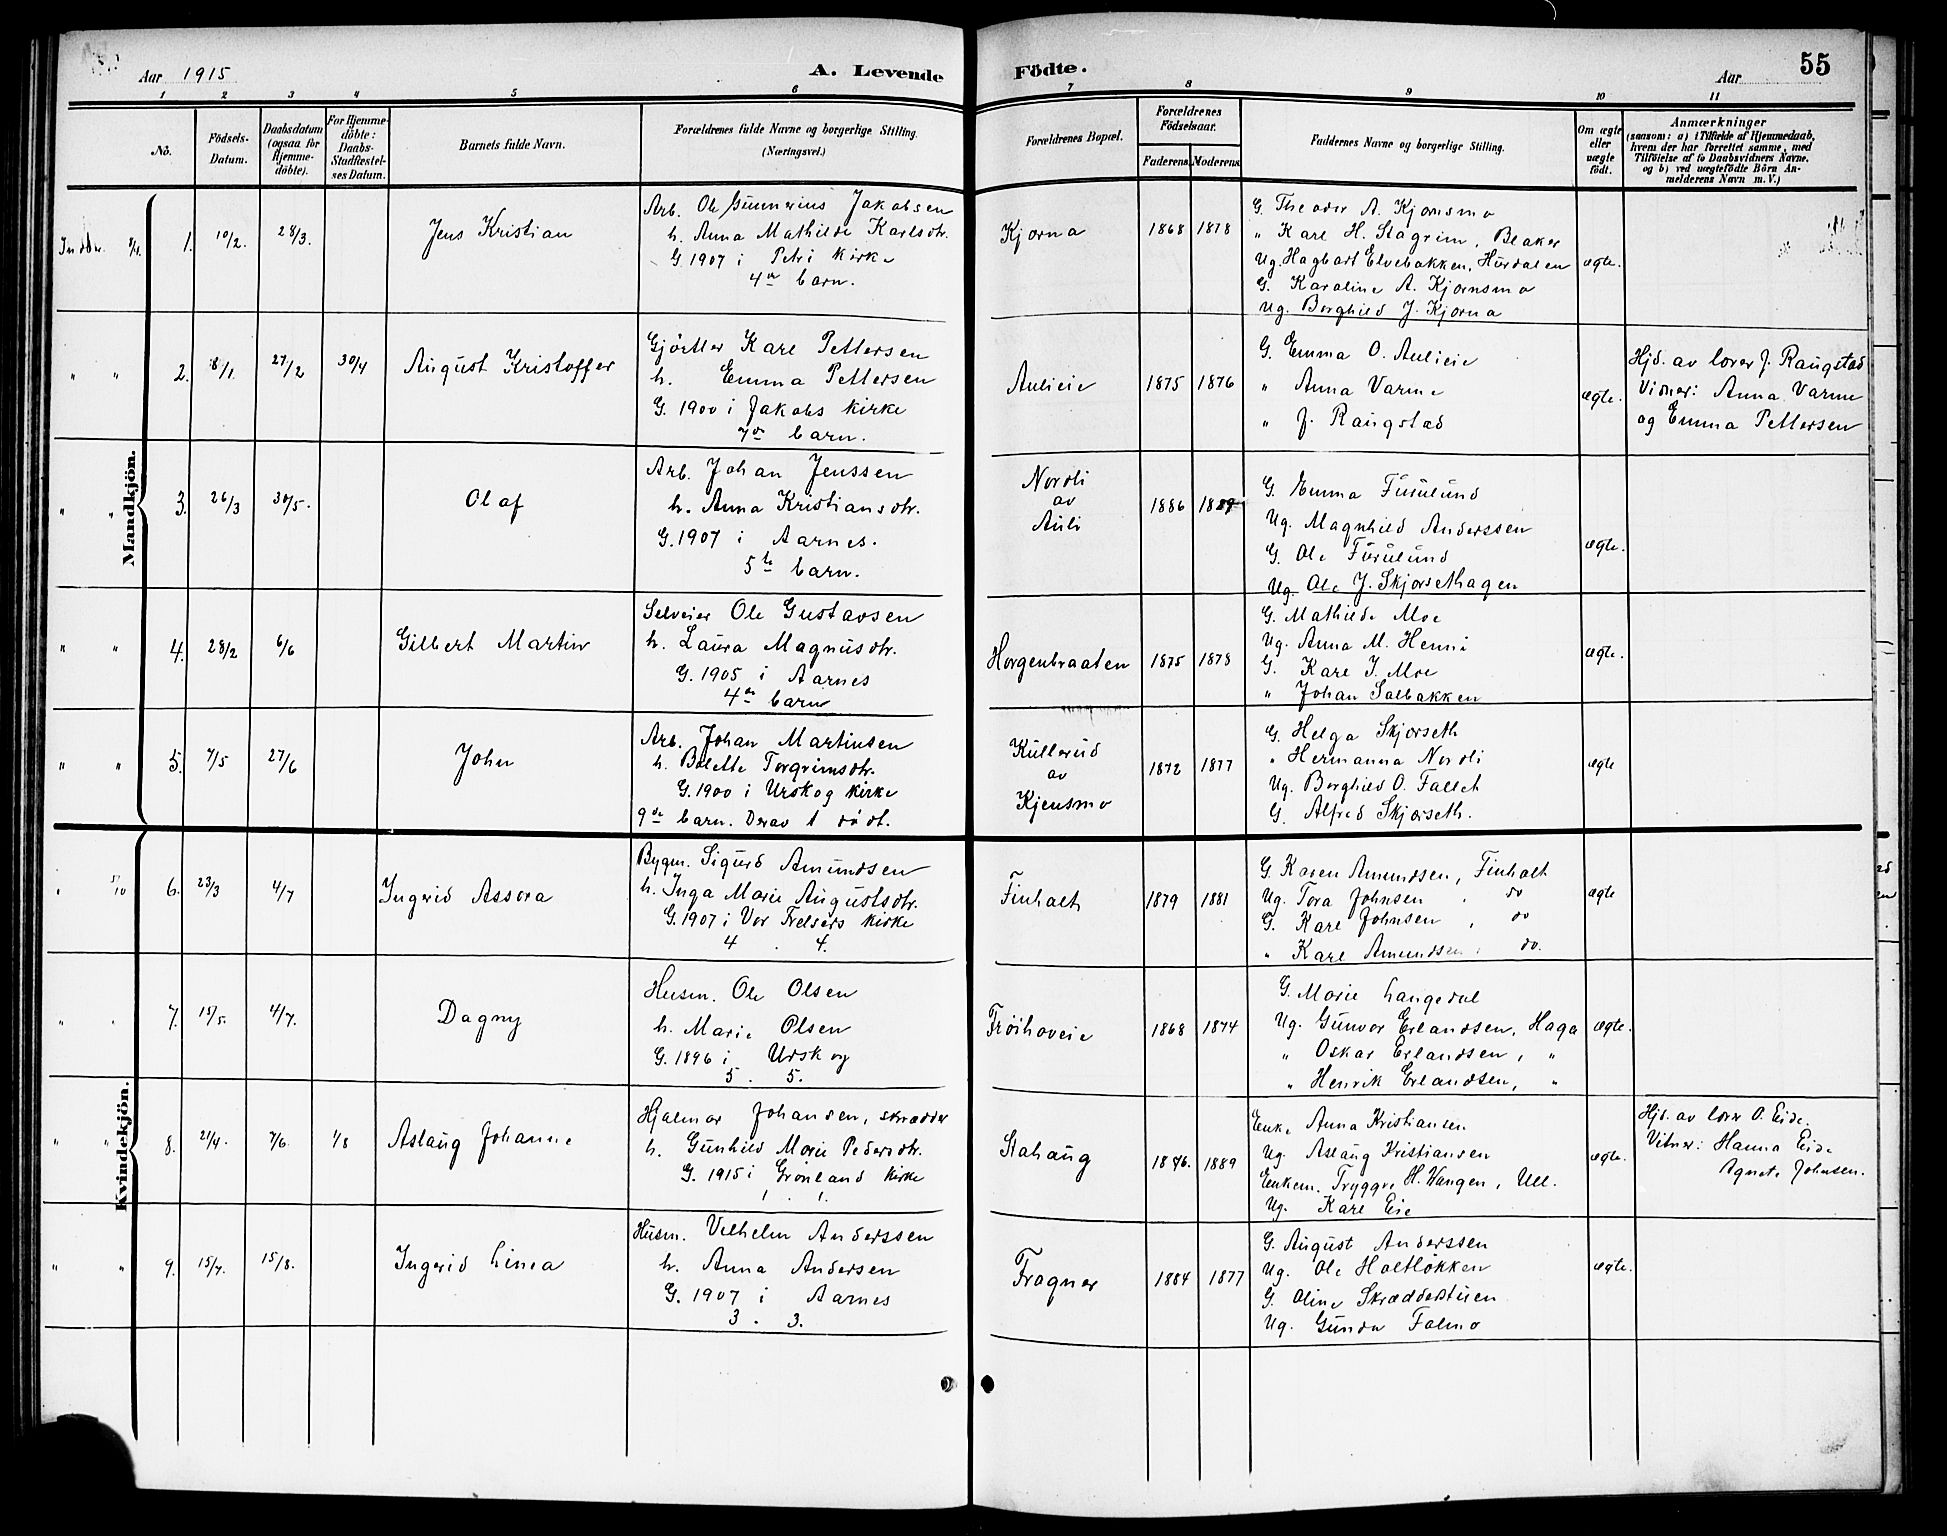 Aar 1915
A. Levende
Födte.
Aar
55
1 2 3 4 5 6 7 8 9 10 11
No.
Födsels-
Datum.
Daabsdatum
(ogsaa for
Hjemme-
döbte).
For Hjemme-
döbte:
Daabs-
Stadfæstel-
ses Datum.
Barnets fulde Navn.
Forældrenes fulde Navne og borgerlige Stilling.
(Næringsvei.)
Forældrenes Bopæl.
Forældrenes
Födselsaar.
Faderens Moderens
Faddernes Navne og borgerlige Stilling.
Om ægte
eller
uægte
födt.
Anmærkninger
(saasom: a) i Tilfælde af Hjemmedaab,
hvem der har forrettet samme, med
Tilföielse af to Daabsvidners Navne.
og b) ved uægtefödte Börn An-
melderens Navn m. V.)
Mandkjön.
1. 10/2. 28/3. Jens Kristian
Arb. Ole Gunnerius Jakobsen
h. Anna Mathilde Karlsdtr.
G. 1907 i Petri kirke
4de barn.
Kjorna 1868 1878
G. Theodor A. Kjørnsmo
" Karl H. Stagrim, Blaker
Ug. Hagbart Elvebakken, Hurdalen
G. Karoline A. Kjørnsmo
Ug. Borghild J. Kjorna
ægte.
" " 2. 18/1. 27/2 30/4 August Kristoffer
Gjörtler Karl Pettersen
h. Emma Pettersen
G. 1900 i Jakobs kirke
7de barn.
Aulieie 1875 1876
G. Emma O. Aulieie
" Anna Varme
" J. Raugstad
ægte.
Hjd. av lærer J. Raugstad
Vidner: Anna Varme
og Emma Pettersen
" " 3. 26/3 30/5. Olaf
Arb. Johan Jenssen
h. Anna Kristiansdtr.
G. 1907 i Aarnes.
5te barn.
Nordli
av
Auli
1886 1889
G. Emma Furulund
Ug. Magnhild Anderssen
G. Ole Furulund
Ug. Ole J. Skjørsethagen
ægte.
" " 4. 28/2 6/6 Gilbert Martin
Selveier Ole Gustavsen
h. Laura Magnusdtr.
G. 1905 i Aarnes
4de barn
Horgenbraaten 1875 1878
G. Mathilde Moe
Ug. Anna M. Henni
G. Karl J. Moe
" Johan Solbakken
ægte.
" " 5. 7/5 27/6 John
Arb. Johan Martinsen
h. Bolette Torgrimsdtr.
G. 1900 i Urskog kirke
9de barn. Derav 1 dødt.
Kullerud
av
Kjensmo
1872 1877
G. Helga Skjørseth
" Hermanna Nordli
Ug. Borghild O. Fallet
G. Alfred Skjørseth.
ægte
Kvindekjön.
6. 23/3 4/7 Ingrid Assora
Bygm. Sigurd Amundsen
h. Inga Marie Augustsdtr.
G. 1907 i Vor Frelsers kirke
4 . 4.
Finholt 1879 1881
G. Karen Amundsen, Finholt
Ug. Tora Johnsen , do
G. Karl Johnsen , do
" Karl Amundsen , do.
ægte
" " 7. 15/5. 4/7. Dagny
Husm. Ole Olsen
h. Marie Olsen
G. 1896 i Urskog
5 . 5.
Frøihoveie 1868 1874
G. Marie Langedal
Ug. Gunvor Erlandsen, Haga
" Oskar Erlandsen, "
" Henrik Erlandsen, "
ægte.
" " 8. 21/4. 7/6. 1/8 Aslaug Johanne
Hjalmar Johansen, skrædder
h. Gunhild Marie Pedersdtr.
G. 1915 i Grønland kirke
1 . 1.
Stahaug 1889
Enke Anna Kristiansen
Ug. Aslaug Kristiansen
Enkem. Tryggve H. Vangen, Ull.
Ug. Karl Eie
ægte.
Hjd. av lærer O. Eide.
Vitner: Hanna Eide
Agnete Johnsen.
" " 9. 15/7. 15/8. Ingrid Linea
Husm. Vilhelm Anderssen
h. Anna Andersen
G. 1907 i Aarnes
3 . 3.
Frogner 1884 1877
G. August Anderssen
Ug. Ole Holtløkken
G. Oline Skrædderstuen
Ug. Gunda Folmo
ægte.